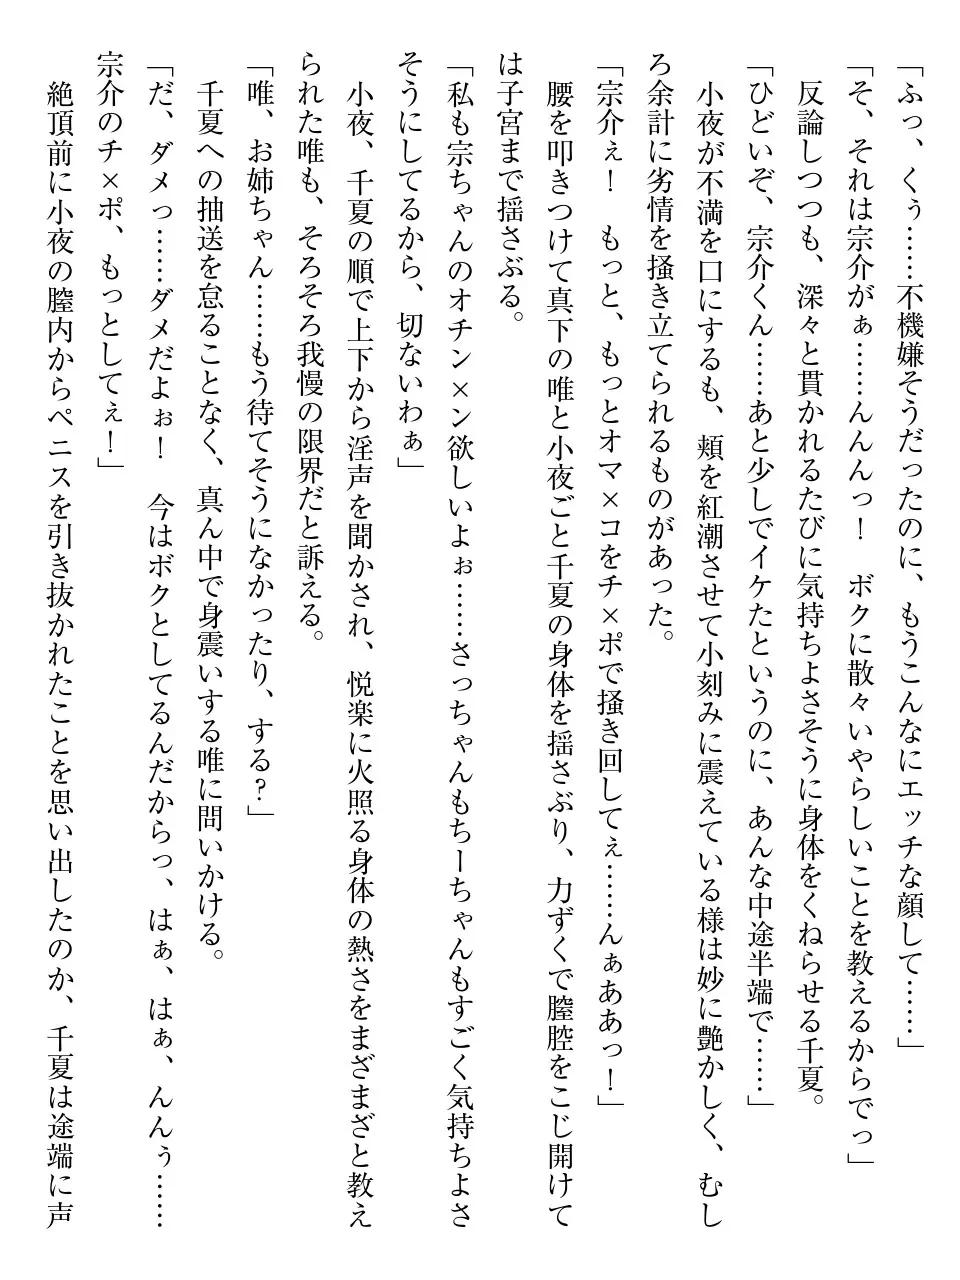 「ふっ、くぅ……不機嫌そうだったのに、もうこんなにエッチな顔して……」
「そ、それは宗介がぁ……んんんっ！　ボクに散々いやらしいことを教えるからでっ」
　反論しつつも、深々と貫かれるたびに気持ちよさそうに身体をくねらせる千夏。
「ひどいぞ、宗介くん……あと少しでイケたというのに、あんな中途半端で……」
　小夜が不満を口にするも、頬を紅潮させて小刻みに震えている様は妙に艶かしく、むし
ろ余計に劣情を掻き立てられるものがあった。
「宗介ぇ！　もっと、もっとオマ×コをチ×ポで掻き回してぇ……んぁああっ！」
　腰を叩きつけて真下の唯と小夜ごと千夏の身体を揺さぶり、力ずくで膣腔をこじ開けて
は子宮まで揺さぶる。
「私も宗ちゃんのオチン×ン欲しいよぉ……さっちゃんもちーちゃんもすごく気持ちよさ
そうにしてるから、切ないわぁ」
　小夜、千夏の順で上下から淫声を聞かされ、悦楽に火照る身体の熱さをまざまざと教え
られた唯も、そろそろ我慢の限界だと訴える。
「唯、お姉ちゃん……もう待てそうになかったり、する？」
　千夏への抽送を怠ることなく、真ん中で身震いする唯に問いかける。
「だ、ダメっ……ダメだよぉ！　今はボクとしてるんだからっ、はぁ、はぁ、んんぅ……
宗介のチ×ポ、もっとしてぇ！」
　絶頂前に小夜の膣内からペニスを引き抜かれたことを思い出したのか、千夏は途端に声